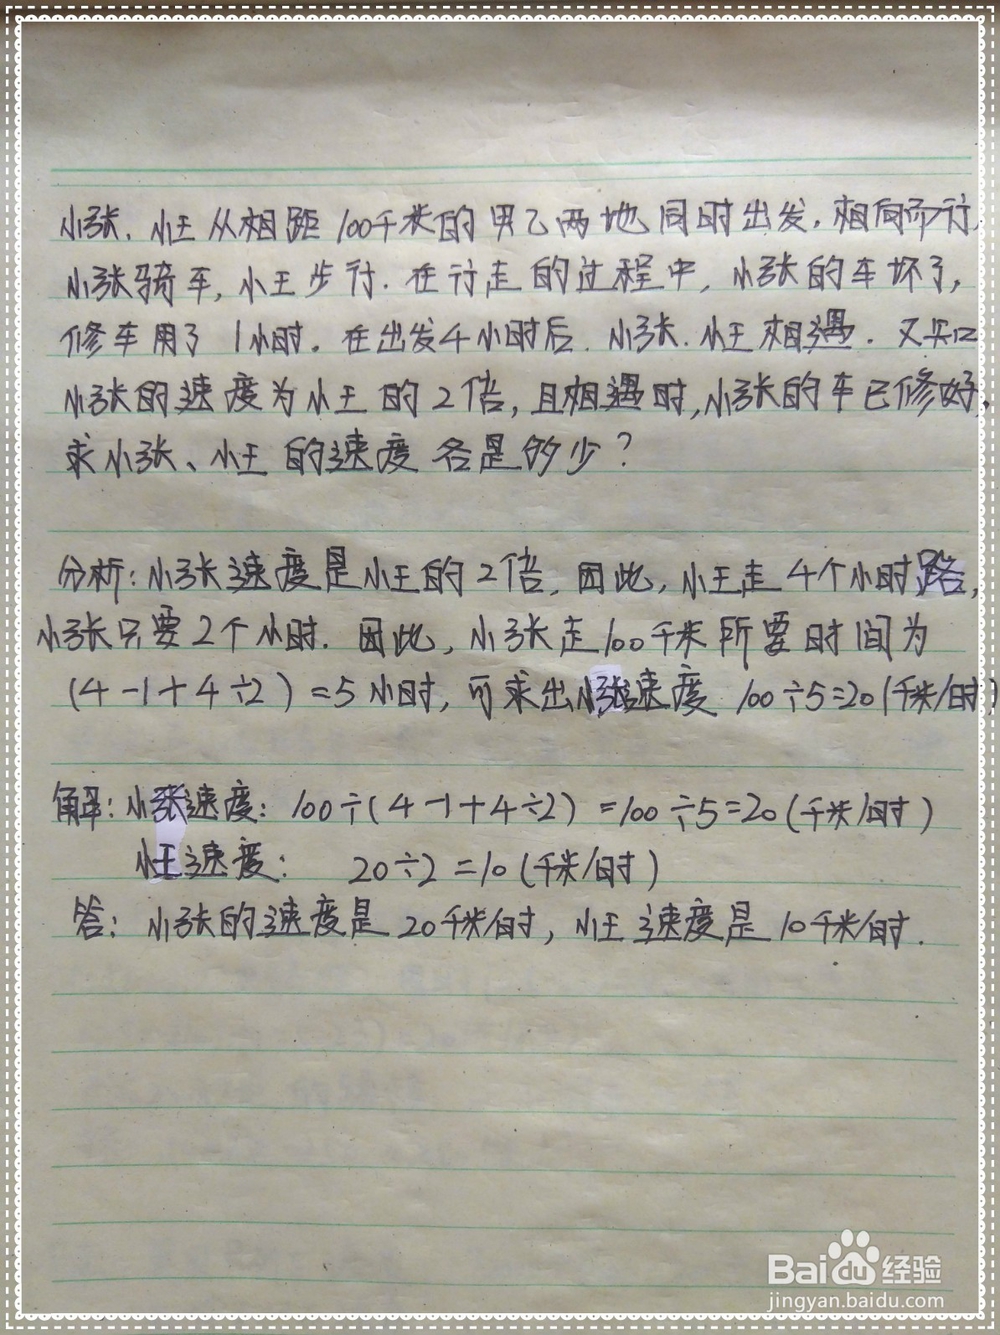 小张、小王从相距100千米的甲乙两地同时出发,相向而行,
小张骑车,小王步行.在行走的过程中,小张的车坏了,
修车用了1小时.在出发4小时后.小张.小王相遇.又知
小张的速度为小王的2倍,且相遇时,小张的车已修好,
求小张、小王的速度各是多少?
分析:小张速度是小王的2倍.因此,小王走4个小时路,
小张只要2个小时.因此,小张走100千米所要时间为
(4-1+4÷2)=5小时,可求出小张速度 100÷5=20(千米/时)
解:小张速度:100÷(4-1+4÷2)=100÷5=20(千米/时)
小王速度: 20÷2=10(千米/时)
答:小张的速度是20千米/时,小王速度是10千米/时.
Baidu经验
jingyan.baidu.com